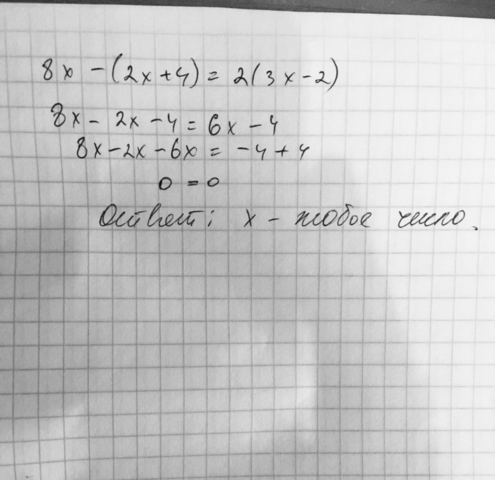 8x - (2x+4) = 2(3x-2)
8x - 2x - 4 = 6x - 4
8x - 2x - 6x = -4 + 4
0 = 0
Ответ: x - любое число.